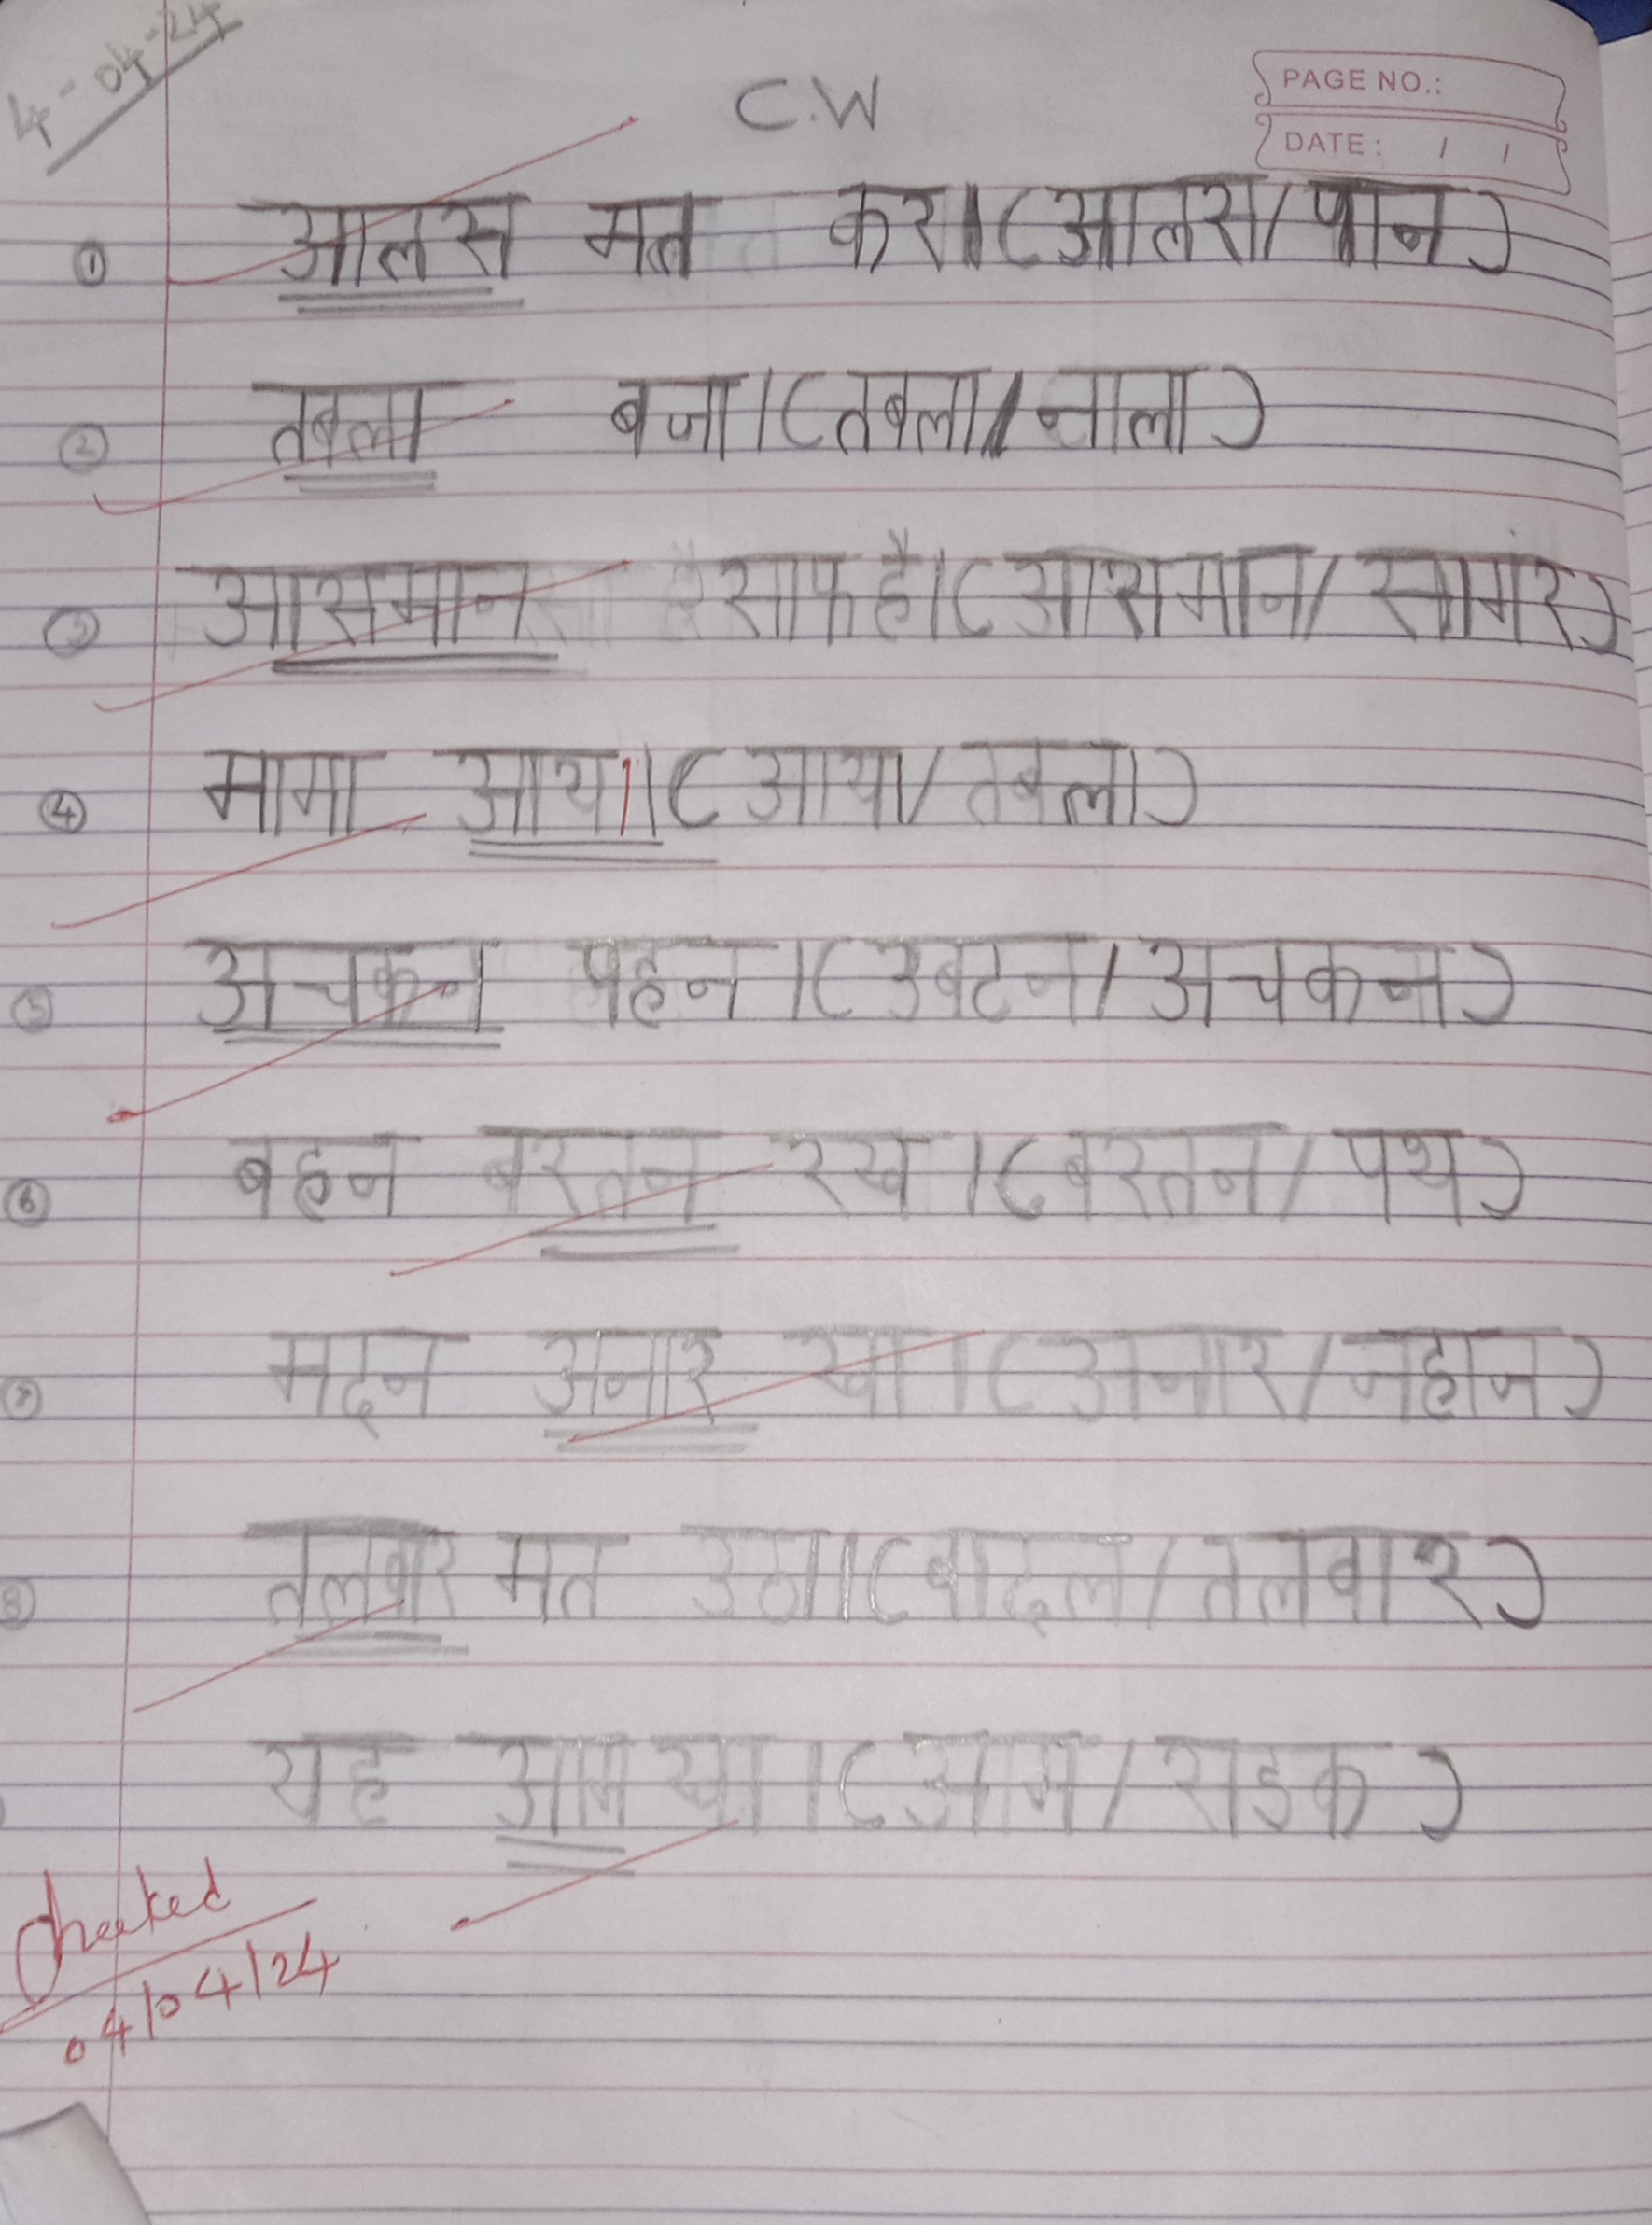 4-04-24
C.W
PAGE NO.:
DATE: / /
① आलस मत कर।(आलस/पान)
② तबला बजा।(तबला/नाला)
③ आसमान साफ है।(आसमान/सागर)
④ मामा आया।(आया/तबला)
⑤ अचकन पहन।(उबटन/अचकन)
⑥ बहन बरतन रख।(बरतन/पथ)
⑦ मदन अनार खा।(अनार/जहाज)
⑧ तलवार मत उठा।(बादल/तलवार)
यह आम खा।(आम/सडक)
Checked
04/04/24